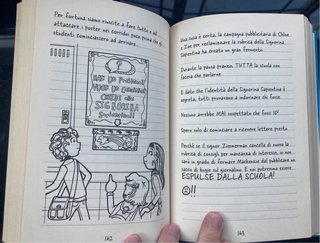 Per fortuna siamo riuscite a fare tutto e ad
attaccare i poster nei corridoi poco prima che gli
studenti cominciassero ad arrivare...
HAI UN PROBLEMA?
VUOI UN CONSIGLIO?
CHIEDI ALLA
SIGNORINA
Sapientina!
142
Una cosa è certa, la campagna pubblicitaria di Chloe
e Zoe per reclamizzare la rubrica della Signorina
Sapientina ha creato un gran fermento.
Durante la pausa pranzo, TUTTA la scuola non
faceva che parlarne.
E dato che l'identità della Signorina Sapientina è
segreta, tutti provavano a indovinare chi fosse.
Nessuno avrebbe MAI sospettato che fossi IO!
Spero solo di cominciare a ricevere lettere presto...
Perché se il signor Zimmerman cancella di nuovo la
rubrica di consigli per mancanza di interesse, io non
sarò in grado di fermare Mackenzie dal pubblicare un
sacco di bugie sul giornalino. E voi potreste essere
ESPULSE DALLA SCUOLA!
!!
143